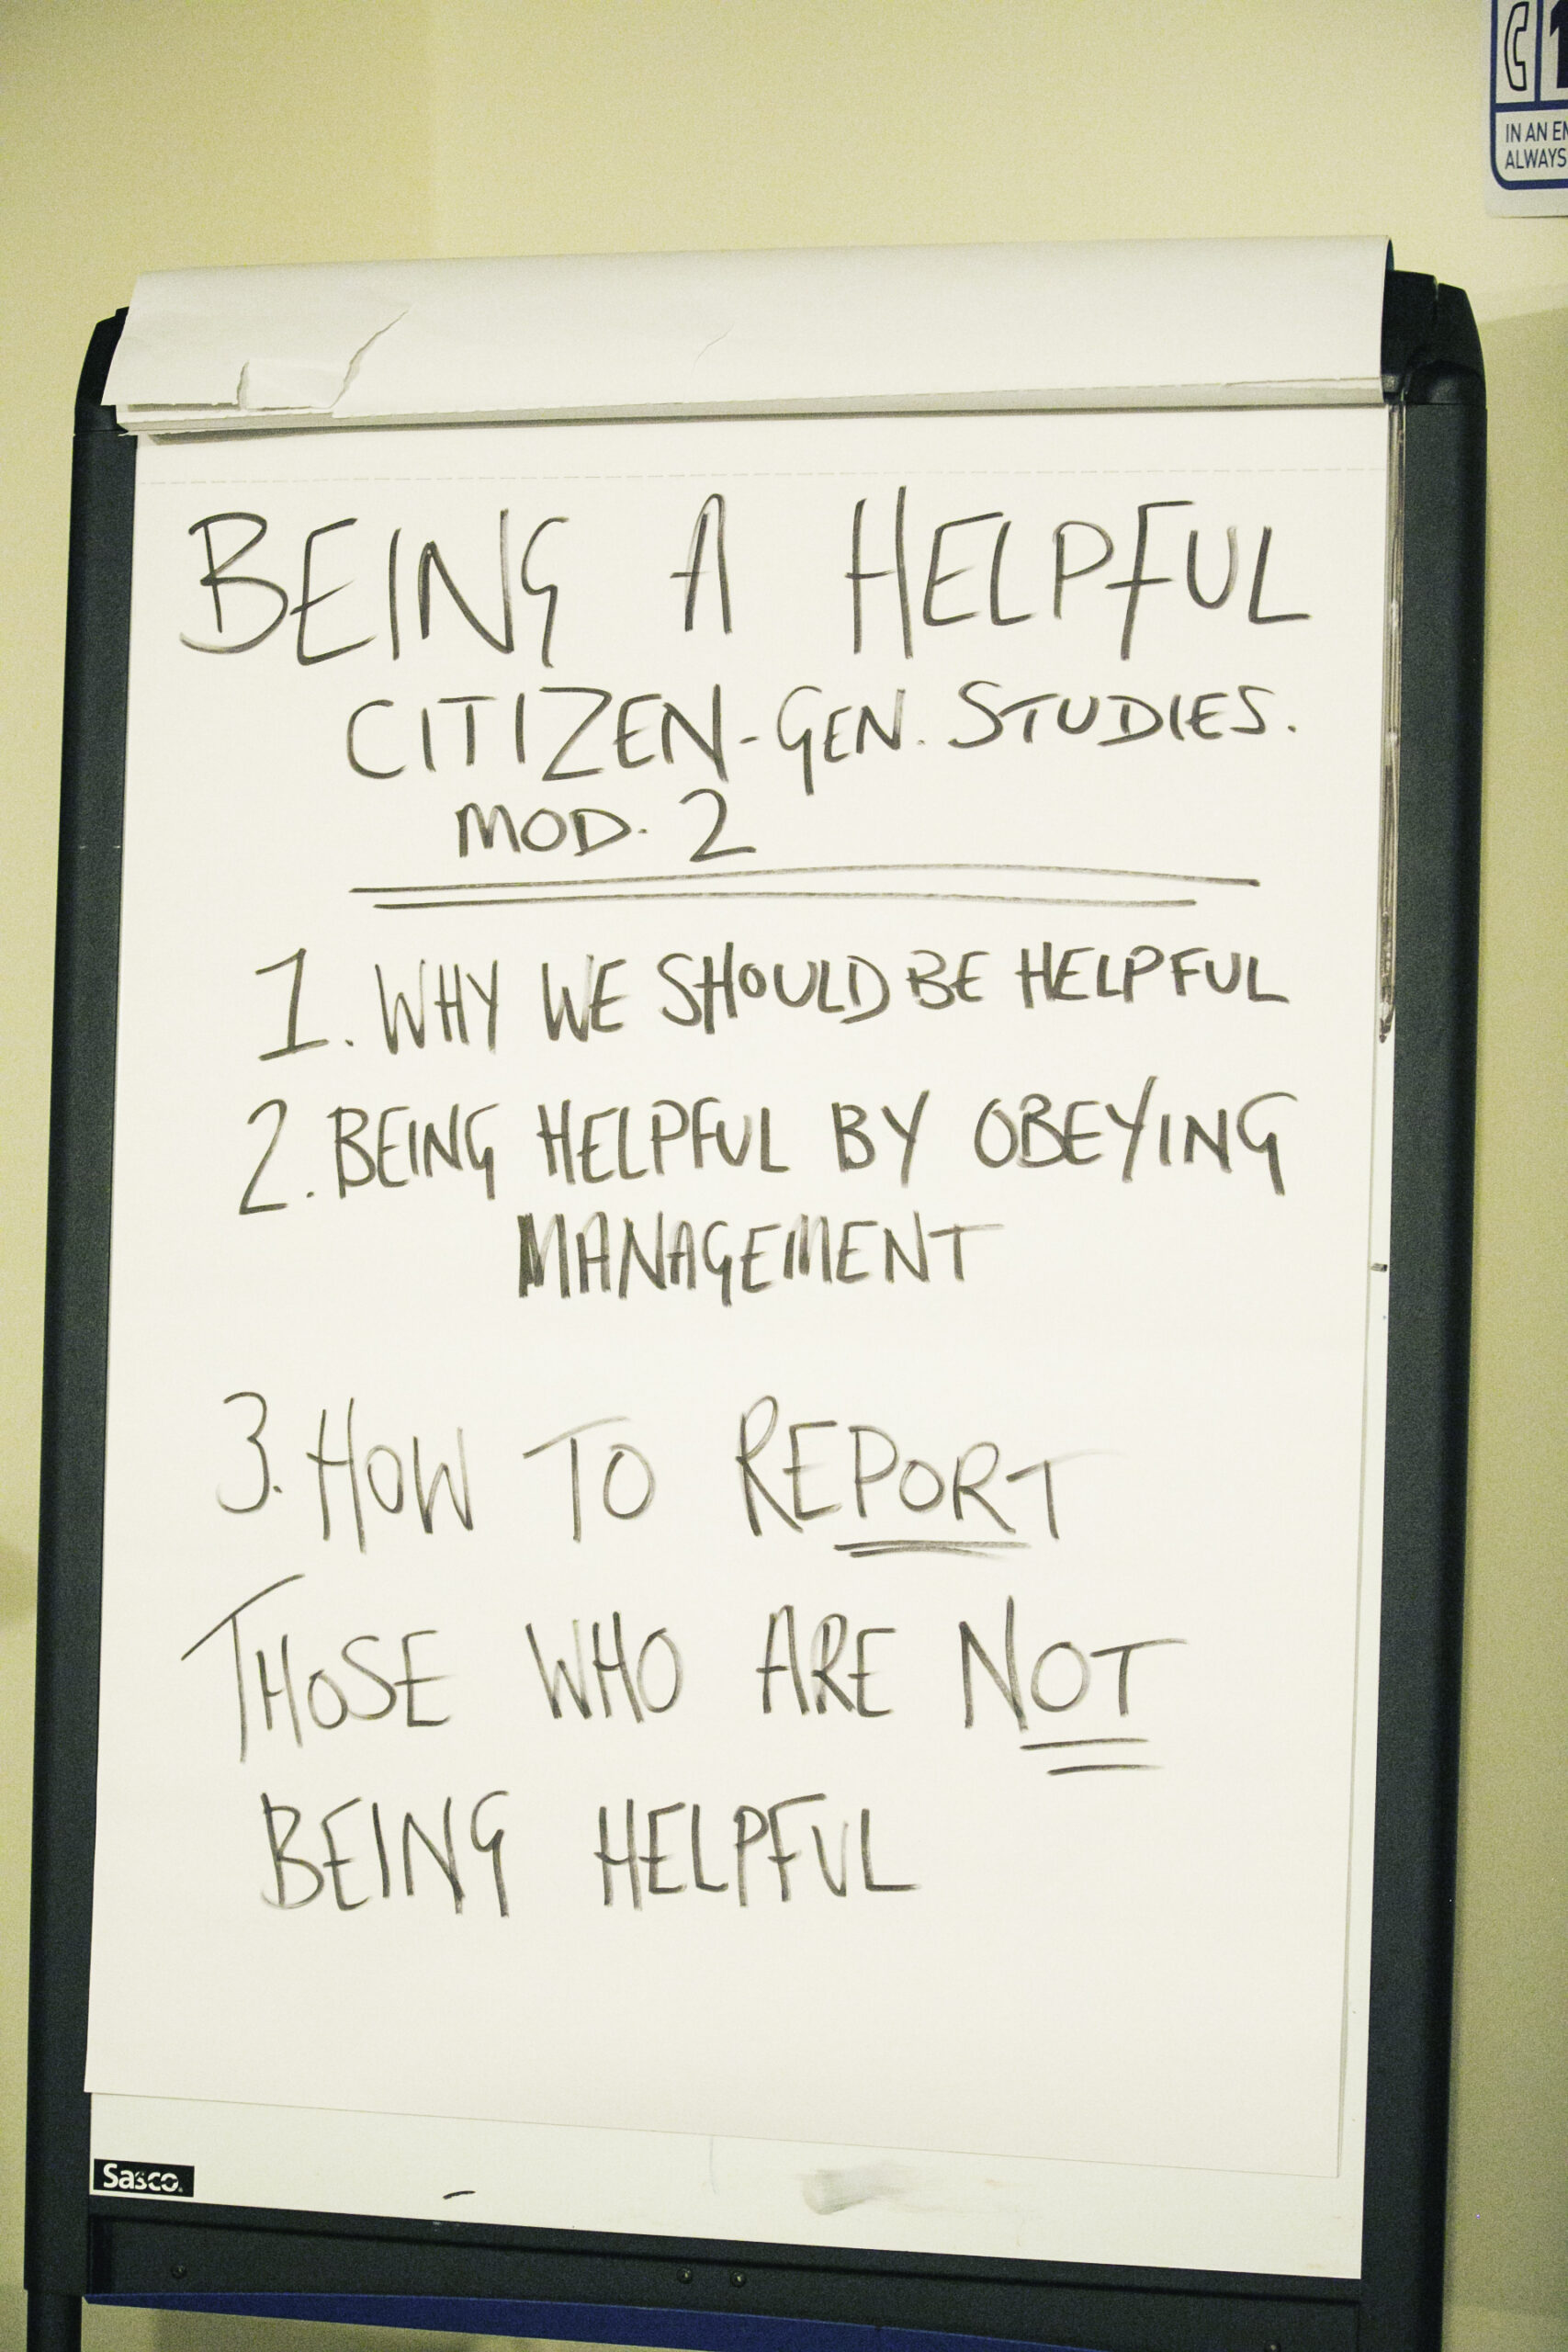 1
IN AN
ALWAYS
BEING A HELPFUL
CITIZEN-GEN. STUDIES.
MOD. 2
1. WHY WE SHOULD BE HELPFUL
2. BEING HELPFUL BY OBEYING
MANAGEMENT
3. HOW TO REPORT
THOSE WHO ARE NOT
BEING HELPFUL
Sasco.